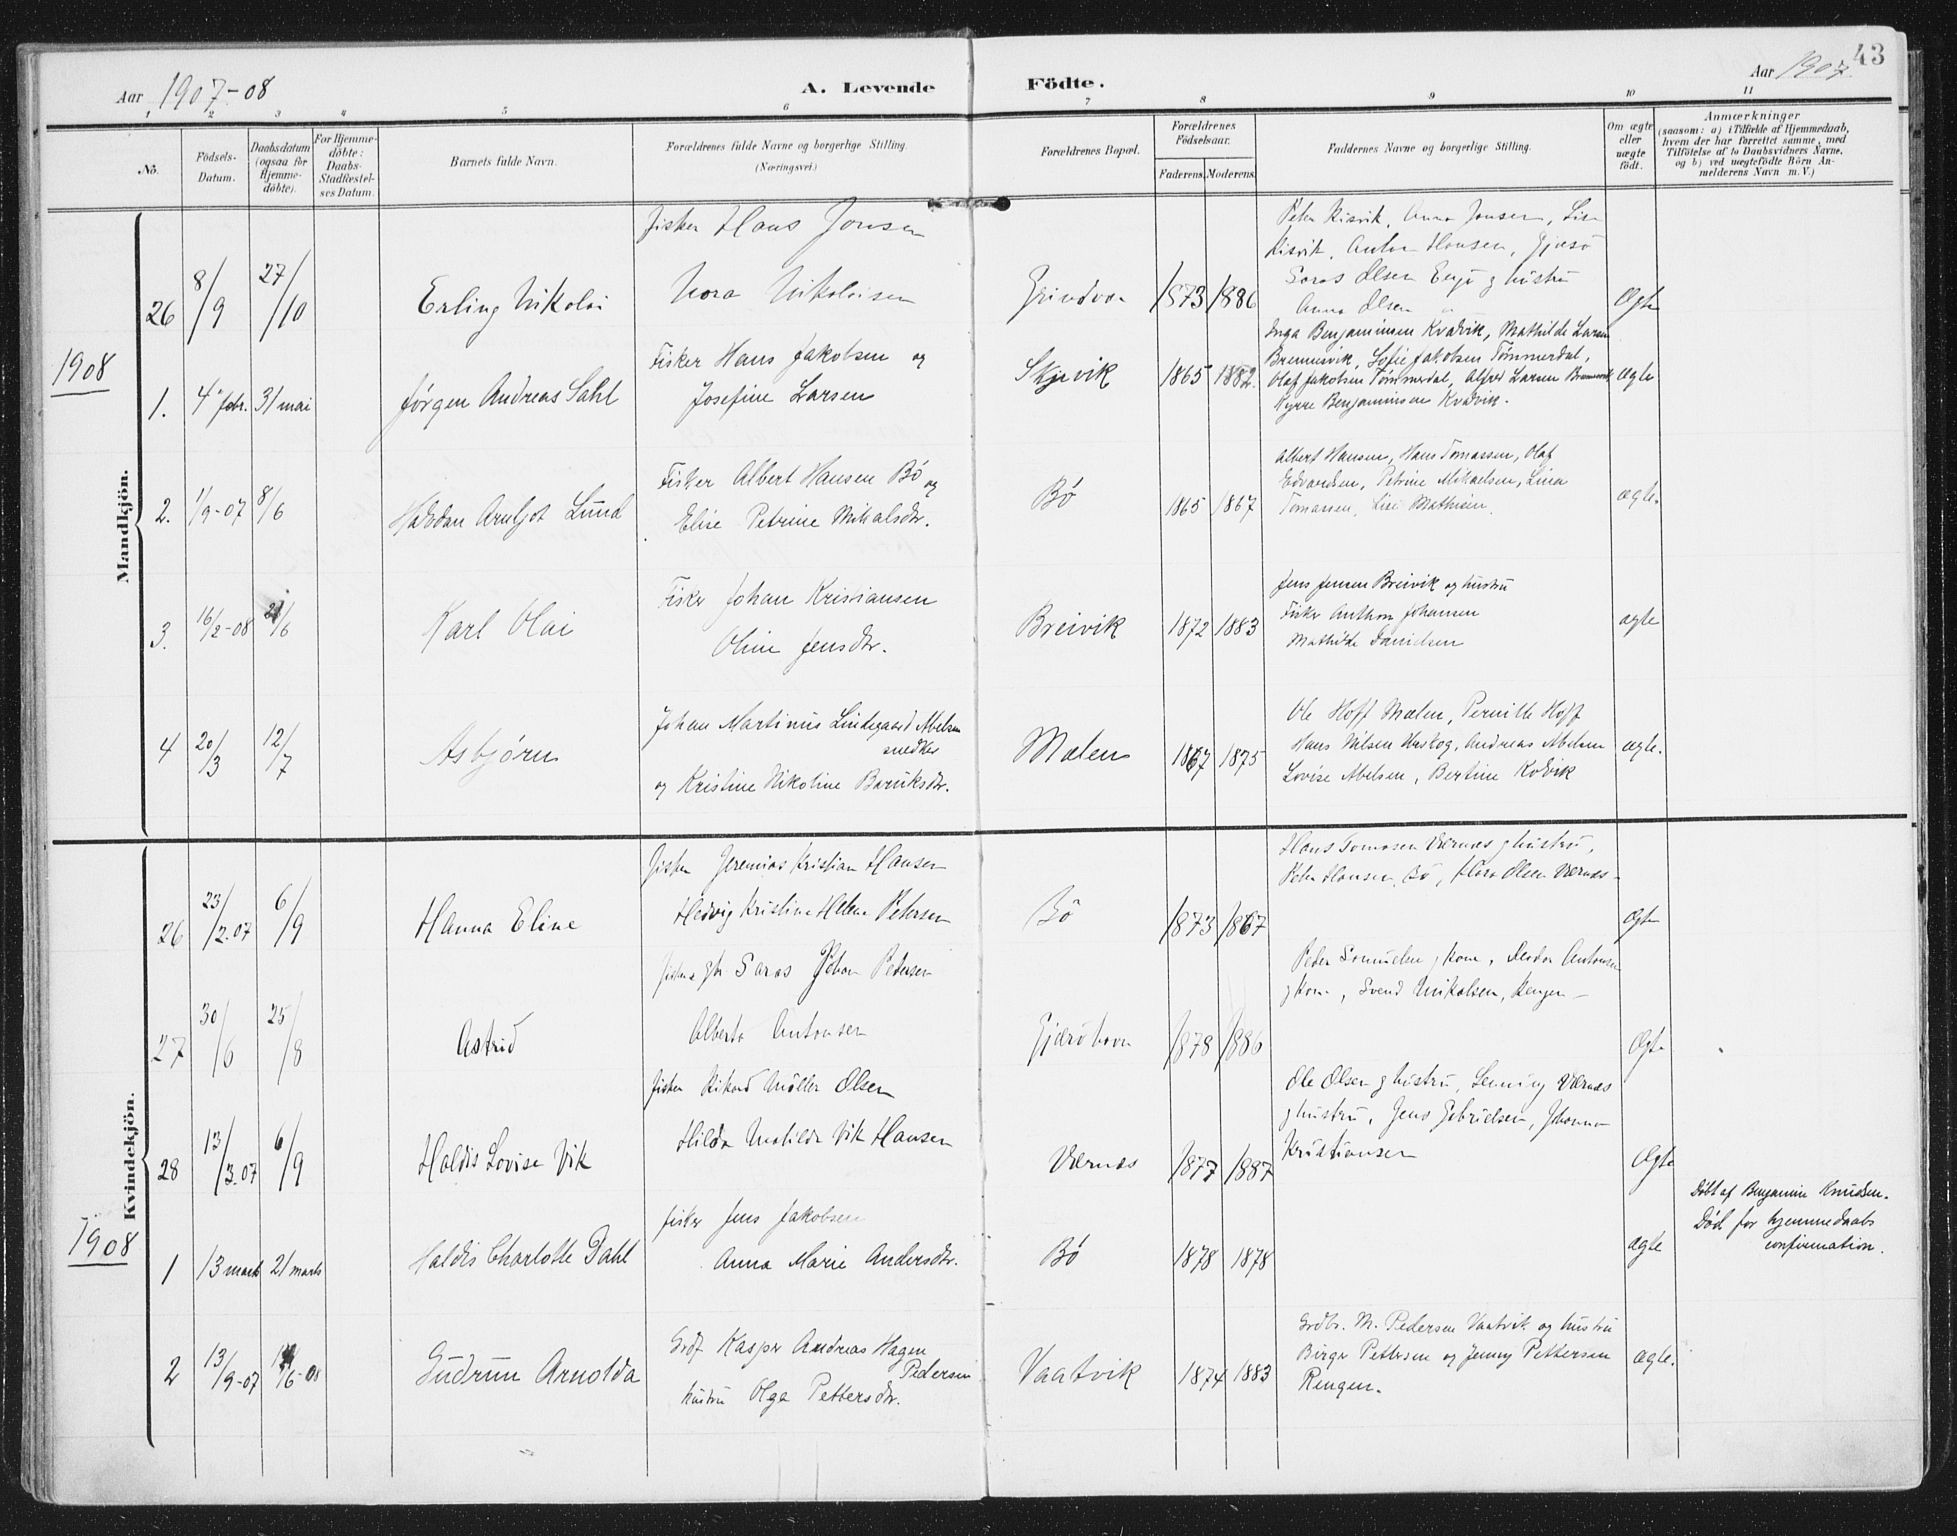 43
Aar 1907-08
A. Levende Födte.
Aar 1907.
1 2 3 4 5 6 7 8 9 10 11
No.
Födsels-
Datum.
Daabsdatum
(ogsaa for
Hjemme-
döbte).
For Hjemme-
döbte:
Daabs-
Stadfæstel-
ses Datum.
Barnets fulde Navn.
Forældrenes fulde Navne og borgerlige Stilling.
(Næringsvei.)
Forældrenes Bopæl.
Forældrenes
Födselsaar.
Faderens. Moderens.
Faddernes Navne og borgerlige Stilling.
Om ægte
eller
uægte
födt.
Anmærkninger
(saasom: a) i Tilfælde af Hjemmedaab,
hvem der har forrettet samme, med
Tilföielse af to Daabsvidners Navne,
og b) ved uægtefödte Börn An-
melderens Navn m. V.)
Mandkjön.
26
8/9
27/10
Erling Nikolai
Fisker Hans Jonsen
Nora Nikolaisen
Grindvo-
1873 1886
Peter Risvik, Anna Jonsen, Lise
Risvik, Anton Hansen, Gjæsö
Saras Olsen Enge g hustru
Anna Olsen
Ægte
1908
1.
4 febr.
31 mai
Jørgen Andreas Sahl
Fisker Hans Jakobsen og
Josefine Larsen
Skjevik
1865 1882.
Inga Benjaminsen Kvadvik, Mathilde Larsen
Brennesvik, Sofie Jakobsen Tømmerdal,
Olaf Jakobsen Tømmerdal, Alfred Larsen Brennesvik
Kyrre Benjaminsen Kvadvik.
ægte
2.
1/9-07
8/6
Halvdan Arnljot Lund
Fisker Albert Hansen Bö og
Elise Petrine Mikalsdtr.
Bö
1865 1867
Albert Hansen, Hans Tomassen, Olaf
Edvardsen, Petrine Mikaelsen, Lina
Tomassen, Lise Mathisen.
ægte.
3.
16/2-08
21/6
Karl Olai
Fisker Johan Kristiansen
Oline Jensdtr.
Breivik
1872 1883
Jens Jensen Breivik og hustru
Fisker Anthon Johansen
Mathilde Danielsen
ægte
4
20/3
12/7
Asbjørn
Johan Martinus Lindegaard Abelsen
snedker
og Kristine Nikoline Baruksdtr.
Mælen
1867 1875
Ole Hoff Mælen, Pernille Hoff
Hans Nilsen Urskog, Andreas Abelsen
Lovise Abelsen, Bertine Kodvik
ægte.
Kvindekjön.
26
23/2.07
6/9
Hanna Eline
Fisker Jeremias Kristian Hansen
Hedvig Kristine Helene Petersen
Bö
1873 1867
Hans Tomasen Værnes g hustru,
Peter Hansen, Bö, Hans Olsen Værnes-
Ægte
27
30/6
25/8
Astrid
Fisker gbr Saras Johan Pedersen
Alberta Antonsen
Gjæröhavn
1878 1886
Peder Samuelsen g kone, Antonsen
g kone, Svend Mikalsen, Rengen-
Ægte
28
13/3.07
6/9
Haldis Lovise Vik
Fisker Rikard Möller Olsen
Hilda Matilde Vik Hansen
Værnes
1877 1887
Ole Olsen g hustru, Værnes
g hustru, Jens Gabrielsen, Johanna
Kristiansen
Ægte
1908
1
13 marts
21 marts
Haldis Charlotte Dahl
Fisker Jens Jakobsen
Anna Marie Andersdtr.
Bö
1878 1878
ægte
Döbt af Benjamin Knudsen.
Död før hjemmedaabs
confirmation.
2
13/9-07
/6-08
Gudrun Arnolda
Grdf Kasper Andreas Hagen
Pedersen
hustru Olga Pettersdtr.
Vaatvik
1874 1883
Grdbr. M. Pedersen Vaatvik og hustru
Birger Pettersen og Jenny Pettersen
Rengen.
ægte.